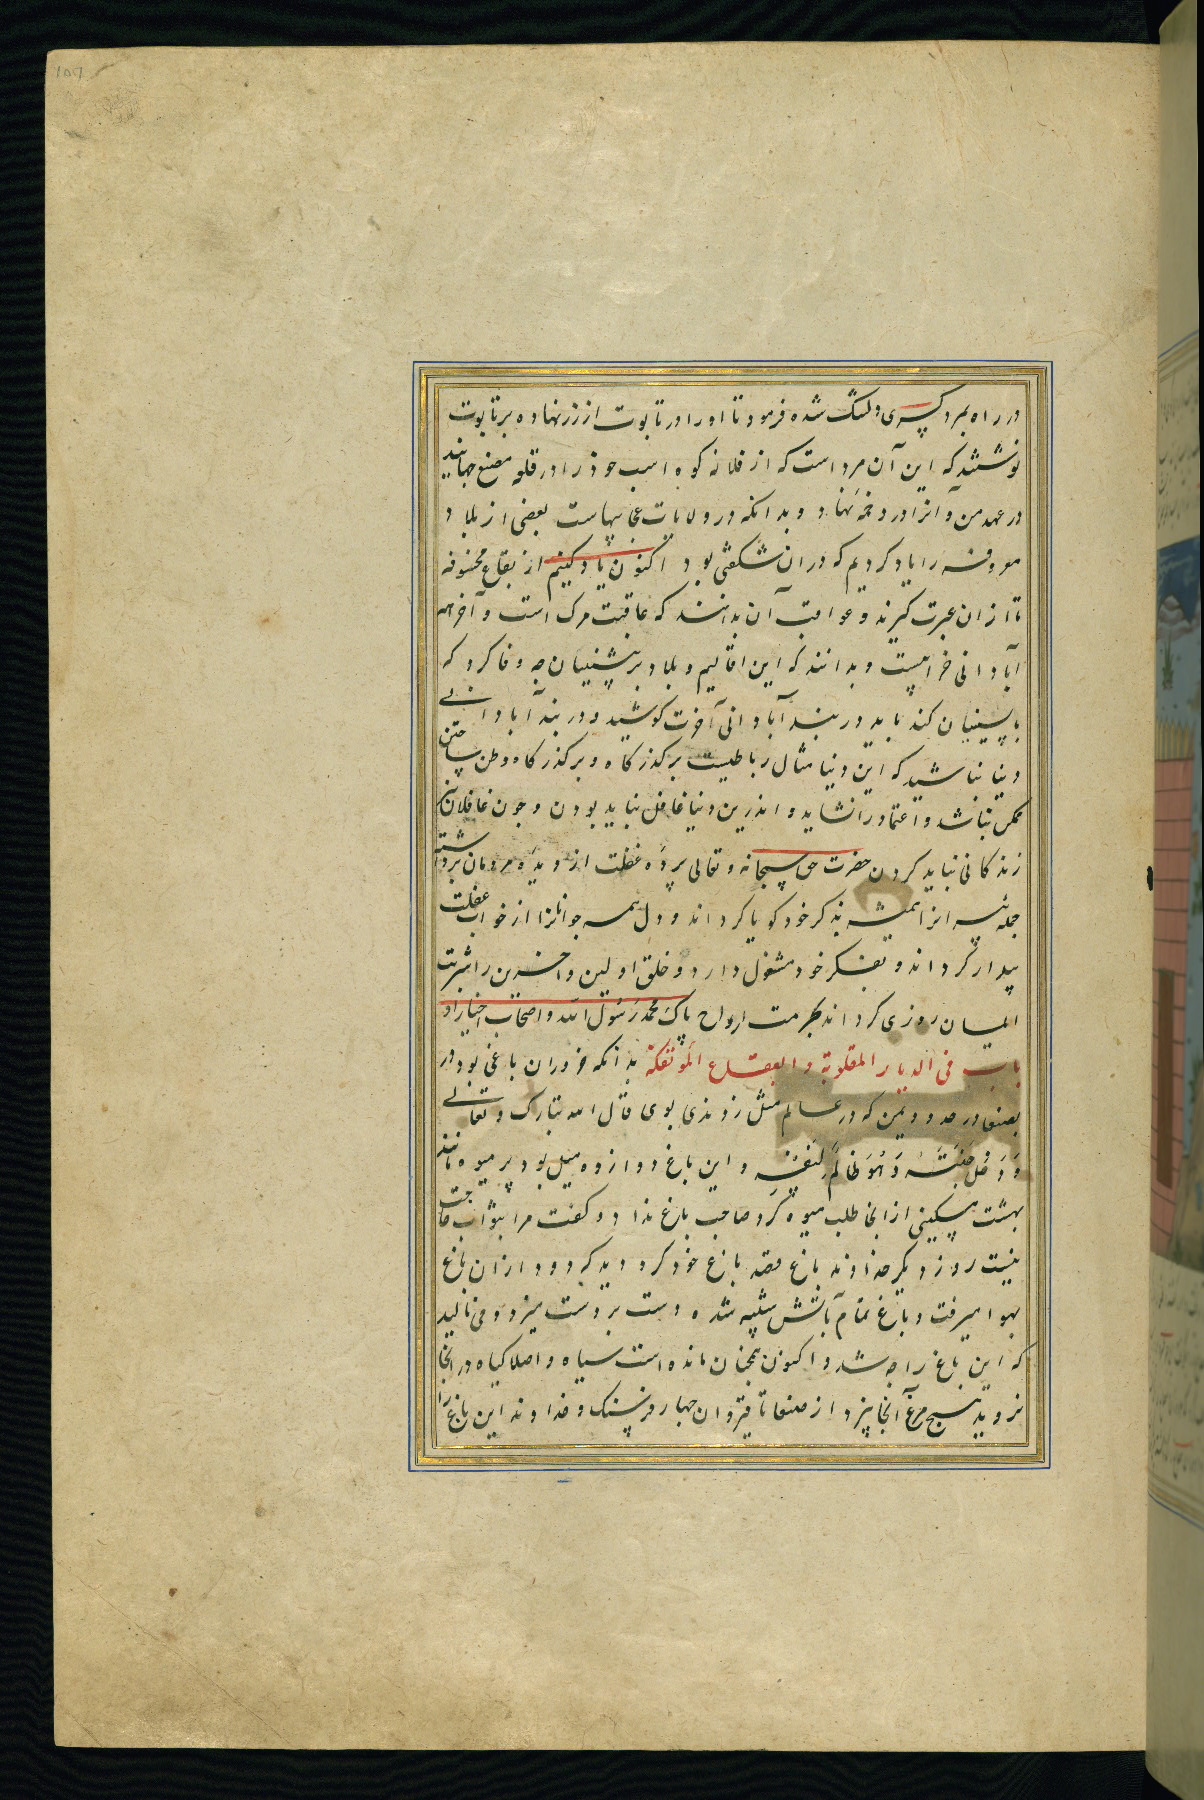 ۱۵۶
در راه بمرد کسری دلتنک شده فرمود تا او را در تابوت از زر نهاده بر تابوت
نوشتند که این آن مرد است که از فلانه کوه اسب خود را در قلعه مصنع جهانید
در عهد من و آنرا در دخمه نهاد و بدانکه در ولایات عجایبهاست بعضی از بلاد
معروفه را یاد کردیم که در آن شکفتی بود اکنون یاد کنیم از بقاع مخسوفه
تا از آن عبرت کیرند و عواقب آن بدانند که عاقبت مرک است و آخر همه
آبادانی خرابیست و بدانند که این اقالیم و بلاد بر پیشینیان چه وفا کرد که
با پسینیان کند باید در بند آبادانی آخرت کوشید و در بند آبادانی
دنیا نباشید که این دنیا مثال رباطیست بر کذرکاه و بر کذرکاه وطن ساختن
ممکن نباشد و اعتماد را نشاید و اندرین دنیا غافل نباید بودن و چون غافلان
زندکانی نباید کردن حضرت حق سبحانه و تعالی پرده غفلت از دیده مردمان برداشته
جمله را همیشه بذکر خود کویا کرداند و دل همه جوانانرا از خواب غفلت
بیدار کرداند و بفکر خود مشغول دارد و خلق اولین و آخرین را شربت
ایمان روزی کرداند بحرمت ارواح پاک محمد رسول الله و اصحاب اخیار او
باب فی الدیار المقلوبة و البقاع المؤتفکة بدانکه ضروران باغی بود در
بصنعا در حدود یمن که در عالم مثل زدندی بوی قال الله تبارک و تعالی
وَ دَخَلَ جَنَّتَهُ وَ هُوَ ظَالِمٌ لِنَفْسِهِ و این باغ دوازده میل بود پر میوه مانند
بهشت مسکینی از آنجا طلب میوه کرد صاحب باغ نداد و کفت مرا بثواب حاجت
نیست روز دیکر خداوند باغ قصد باغ خود کرد دید که دود از آن باغ
بهوا میرفت و باغ تمام بآتش شده دست بر دست میزد و می نالید
که این باغ را چه شد و اکنون همچنان مانده است سیاه و اصلا کیاه در آنجا
نروید هیچ مرغ آنجا نپرد از صنعا تا قیروان چهار فرسنک و خداوند این باغ را